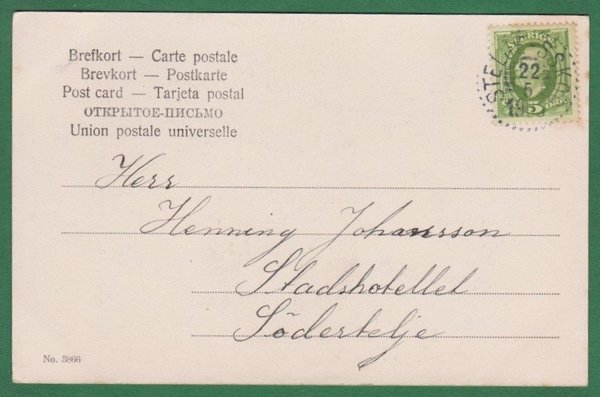 Brefkort — Carte postale
Brevkort — Postkarte
Post card — Tarjeta postal
ОТКРЫТОЕ-ПИСЬМО
Union postale universelle
SVERIGE
22
6
5
Herr
Henning Johansson
Stadshotellet
Södertelje
No. 3866